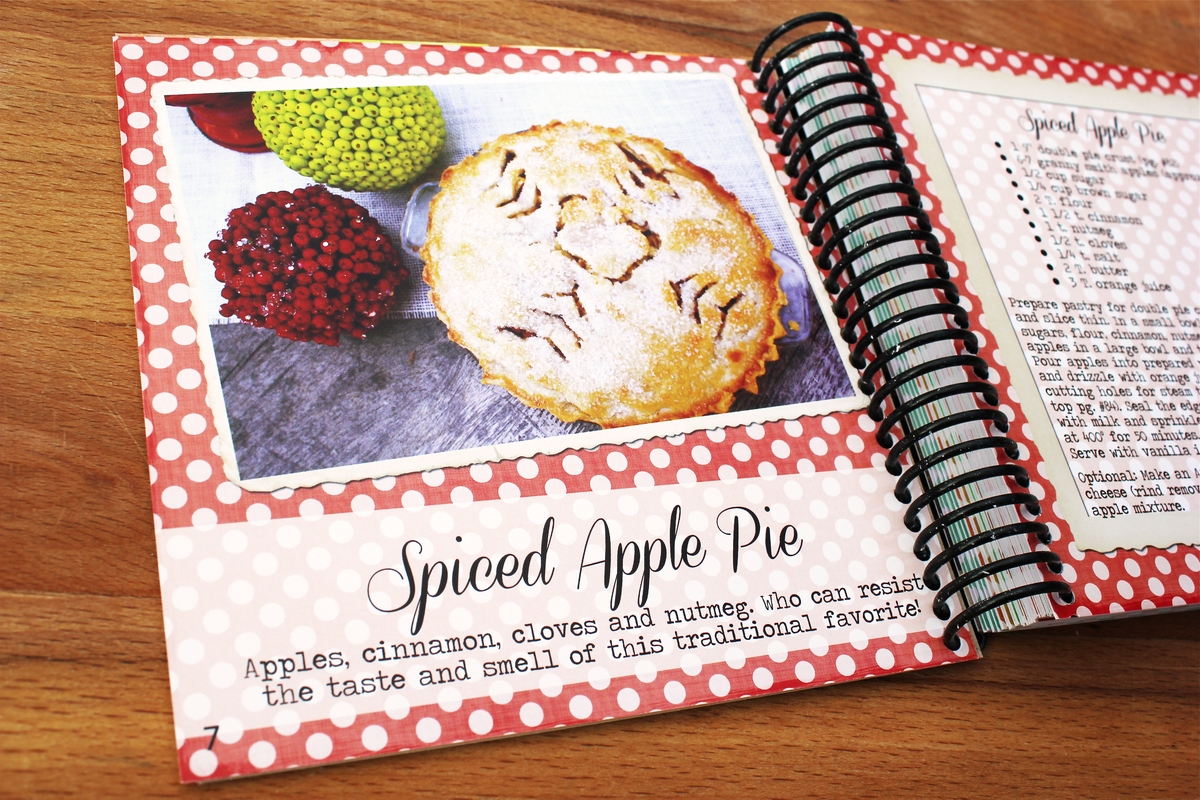 Spiced Apple Pie
Apples, cinnamon, cloves and nutmeg. Who can resist
the taste and smell of this traditional favorite!
7
Spiced Apple Pie
1 9" double pie crust (pg.
6-7 granny smith apples (approx
1/2 cup sugar
1/4 cup brown sugar
2 T. flour
1 1/2 t. cinnamon
1 t. nutmeg
1/2 t. cloves
1/4 t. salt
2 T. butter
3 T. orange juice
Prepare pastry for double pie
and slice thin. In a small bo
sugars, flour, cinnamon, nutm
apples in a large bowl and
Pour apples into prepared
and drizzle with orange
cutting holes for steam
top pg. #84). Seal the edg
with milk and sprinkl
at 400° for 50 minutes
Serve with vanilla i
Optional: Make an A
cheese (rind remov
apple mixture.